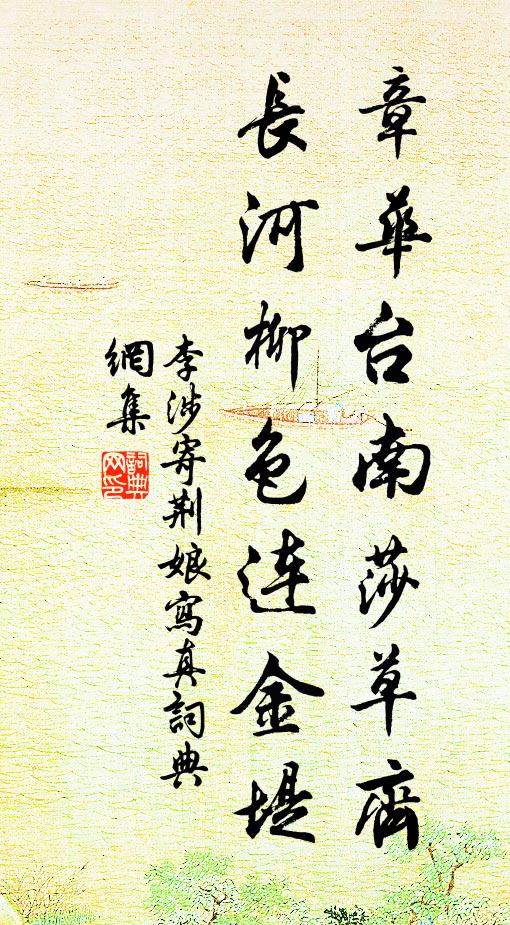 章華台南莎草齊
長河柳色连金堤
李涉寄荆娘寫真詞典
網集
詞典网印